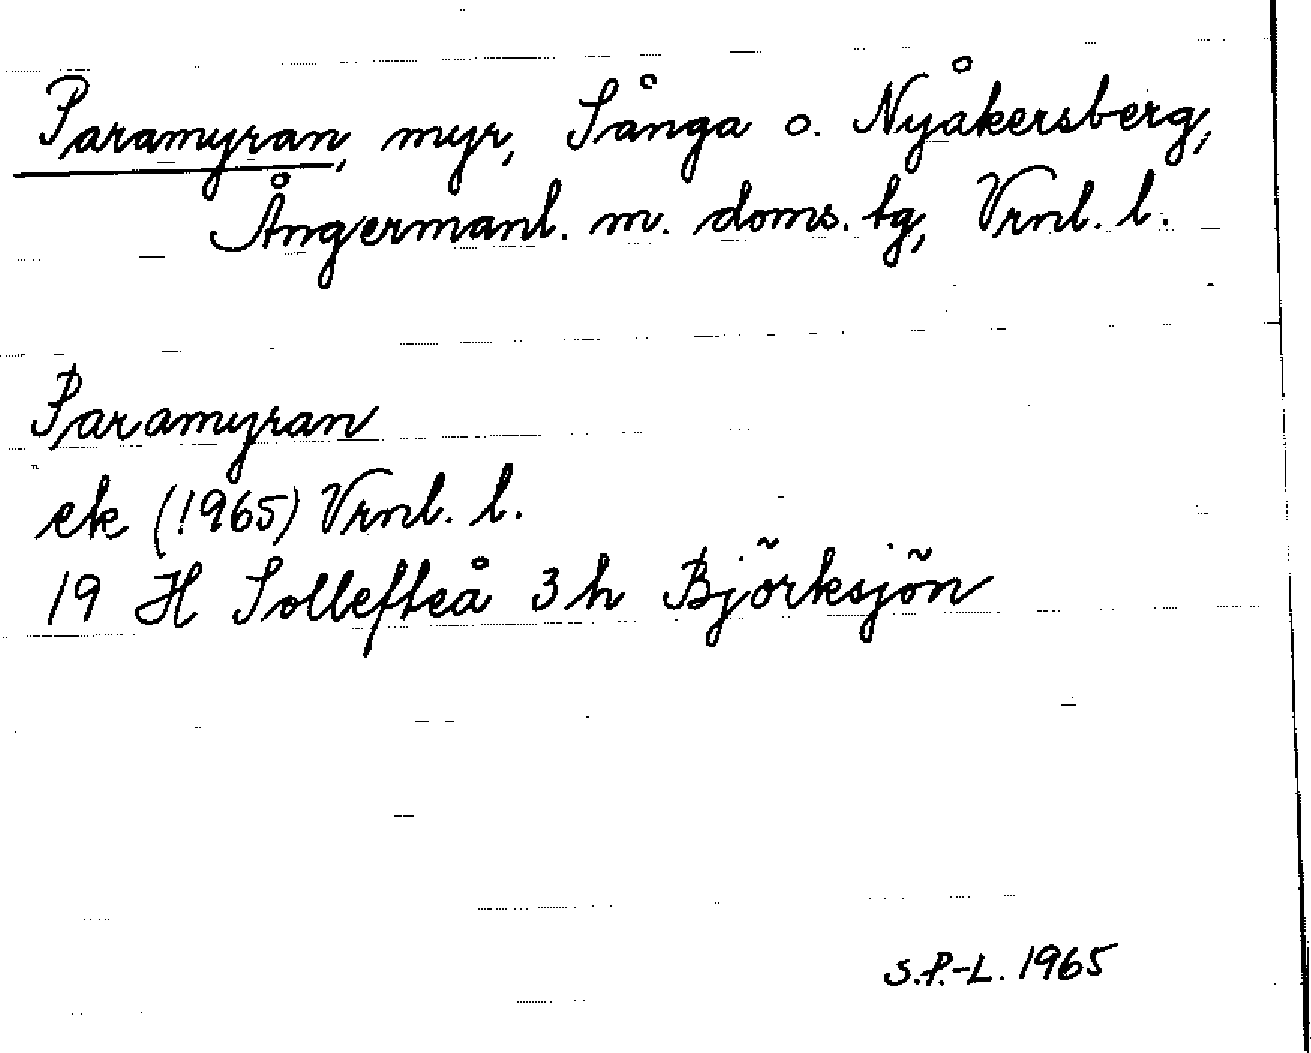 Paramyran, myr, Sånga o. Nyåkersberg,
Ångermanl. m. doms. tg, Vrnl. l.
Paramyran
ek (1965) Vrnl. l.
19 H Sollefteå 3 h Björksjön
S.P.-L. 1965